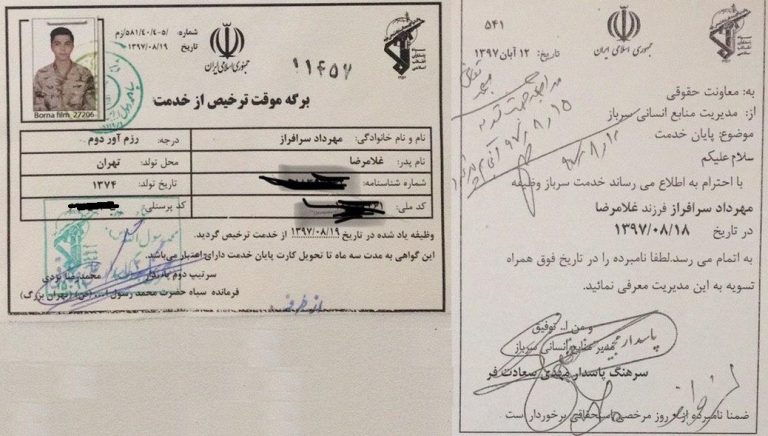 شماره: ۵۸۱/۴۰/۴۰۵/زم
تاریخ ۱۳۹۷/۰۸/۱۹
جمهوری اسلامی ایران
Borna film_27206
برگه موقت ترخیص از خدمت
نام و نام خانوادگی: مهرداد سرافراز درجه: رزم آور دوم
نام پدر: غلامرضا محل تولد: تهران
شماره شناسنامه: تاریخ تولد: ۱۳۷۴
کد ملی: کد پرسنلی:
وظیفه یاد شده در تاریخ ۱۳۹۷/۰۸/۱۹ از خدمت ترخیص گردید.
این گواهی به مدت سه ماه تا تحویل کارت پایان خدمت دارای اعتبار می‌باشد.
سرتیپ دوم پاسدار محمدرضا یزدی
فرمانده سپاه حضرت محمد رسول ا...(ص) (تهران بزرگ)
از طرف
۵۴۱
جمهوری اسلامی ایران
تاریخ: ۱۲ آبان ۱۳۹۷
به: معاونت حقوقی
از: مدیریت منابع انسانی سرباز
موضوع: پایان خدمت
سلام علیکم
با احترام به اطلاع می رساند خدمت سرباز وظیفه
مهرداد سرافراز فرزند غلامرضا
در تاریخ ۱۳۹۷/۰۸/۱۸
به اتمام می رسد.لطفا نامبرده را در تاریخ فوق همراه
تسویه به این مدیریت معرفی نمائید.
و من ا... توفیق
مدیر منابع انسانی سرباز
سرهنگ پاسدار مهدی سعادت فر
ضمنا نامبرده از روز مرخصی استحقاقی برخوردار است